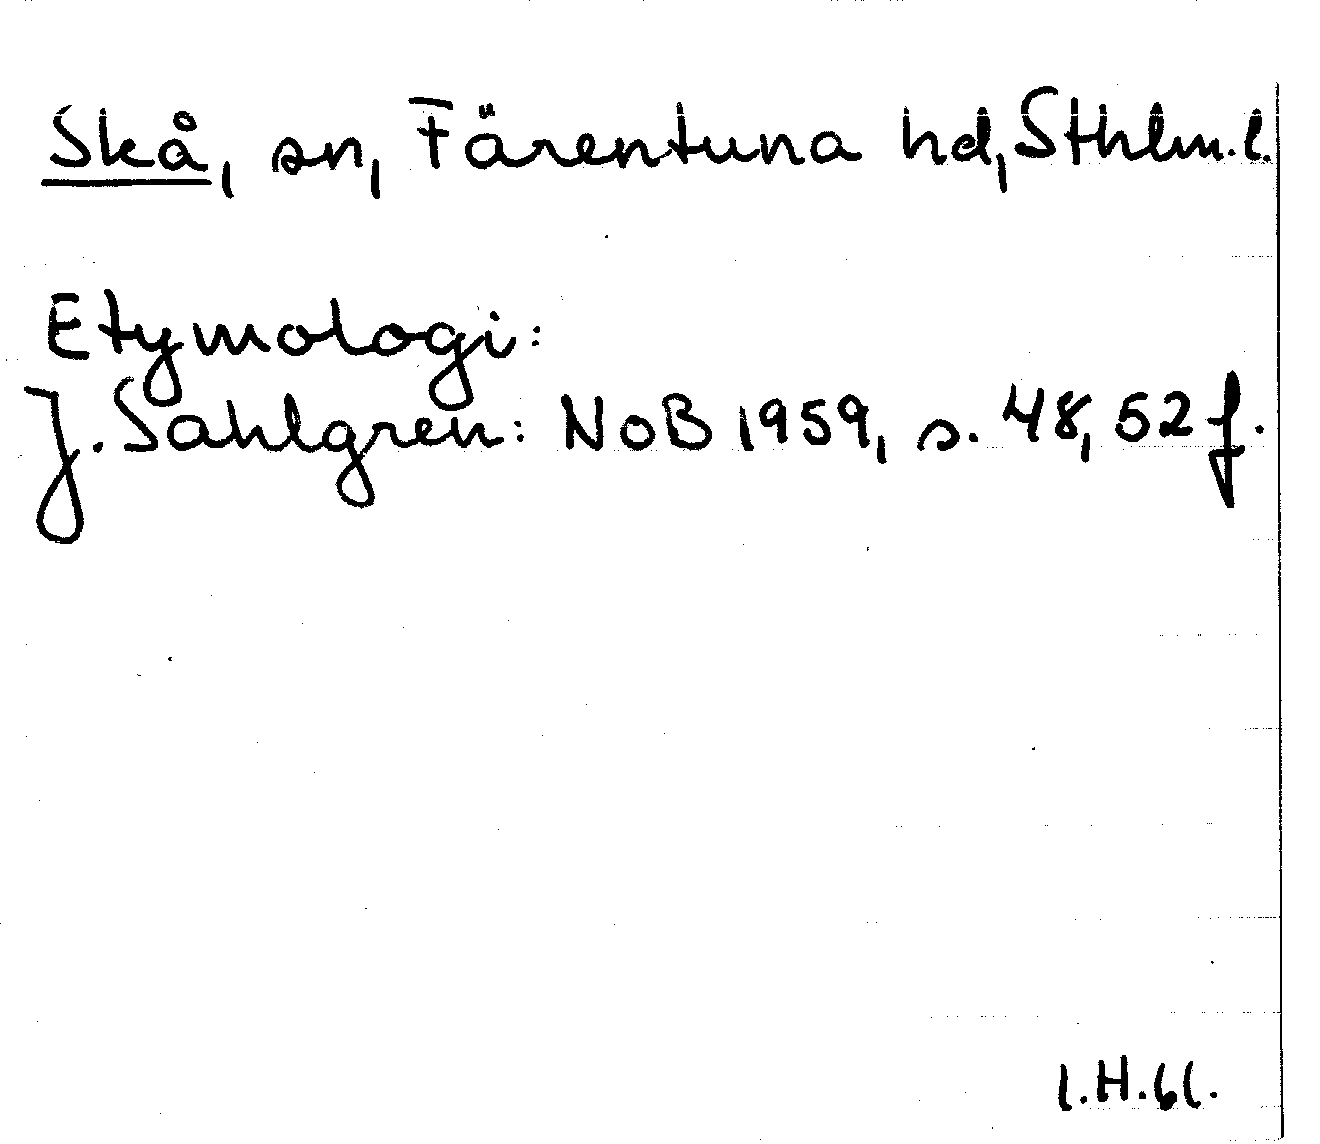 Skå, sn, Färentuna hd, Sthlm. l.
Etymologi:
J. Sahlgren: NoB 1959, s. 48, 52 f.
I.H.61.